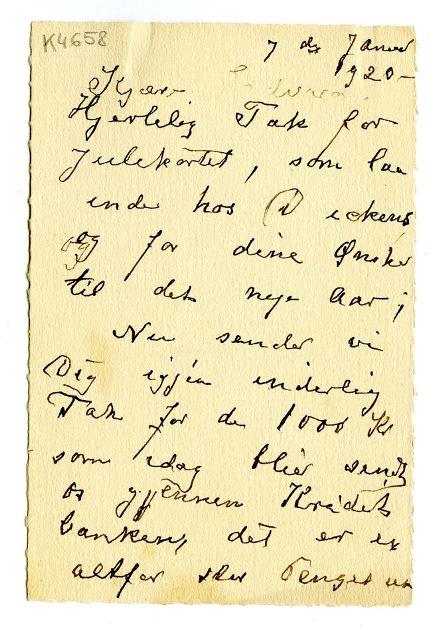 K4658
7 de Januar
1920-
Kjære Edvard,
Hjertelig Tak for
Julekortet, som laa
inde hos Dickens
og for dine Ønsker
til det nye Aar;
Nu sender vi
Dig igjen inderlig
Tak for de 1000 Kr
som idag blev sendt
os gjennem Kredit
banken, det er en
altfor stor Penge